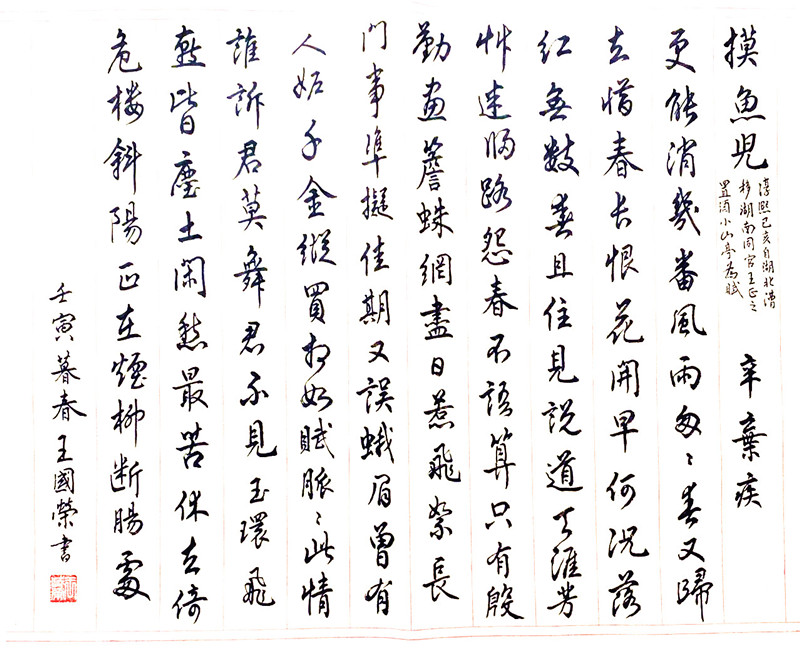 摸魚兒
淳熙己亥自湖北漕
移湖南同官王正之
置酒小山亭為賦
辛棄疾
更能消幾番風雨匆〻春又歸
去惜春長恨花開早何況落
紅無數春且住見說道天涯芳
艸迷歸路怨春不語算只有殷
勤畫簷蛛網盡日惹飛絮長
門事準擬佳期又誤蛾眉曾有
人妬千金縱買相如賦脈〻此情
誰訴君莫舞君不見玉環飛
燕皆塵土閑愁最苦休去倚
危樓斜陽正在煙柳斷腸處
壬寅暮春王國榮書